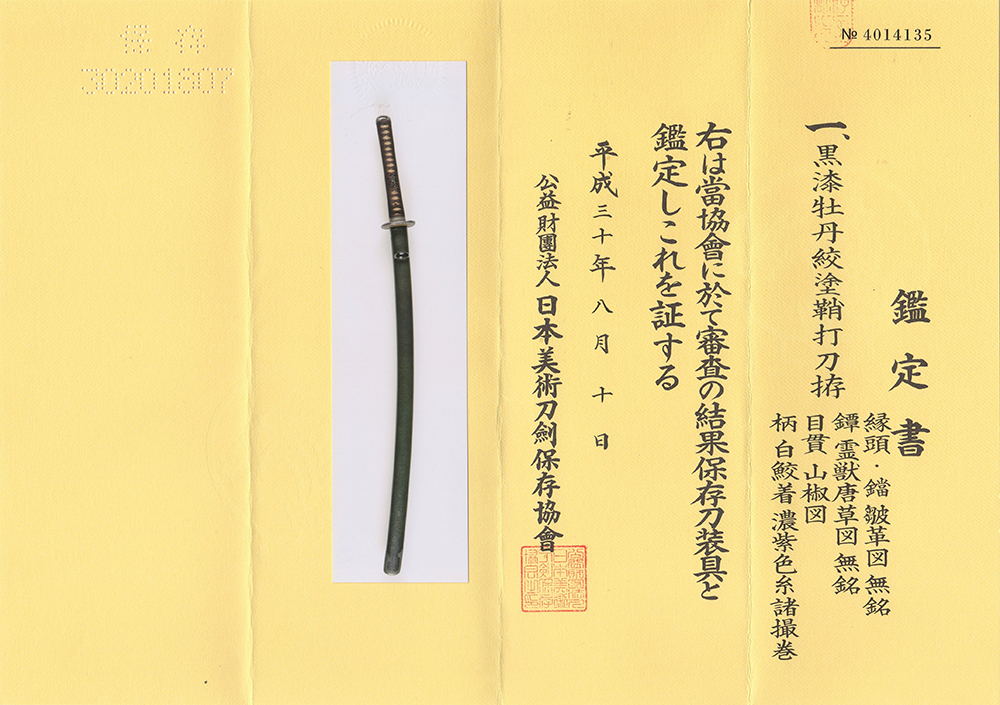 № 4014135
鑑定書
一、黒漆牡丹絞塗鞘打刀拵
縁頭・鐺 皺革図 無銘
鐔 霊獣唐草図 無銘
目貫 山椒図
柄 白鮫着 濃紫色糸諸撮巻
右は當協會に於て審査の結果保存刀装具と
鑑定しこれを証する
平成三十年八月十日
公益財團法人 日本美術刀劍保存協會
保存
30201807